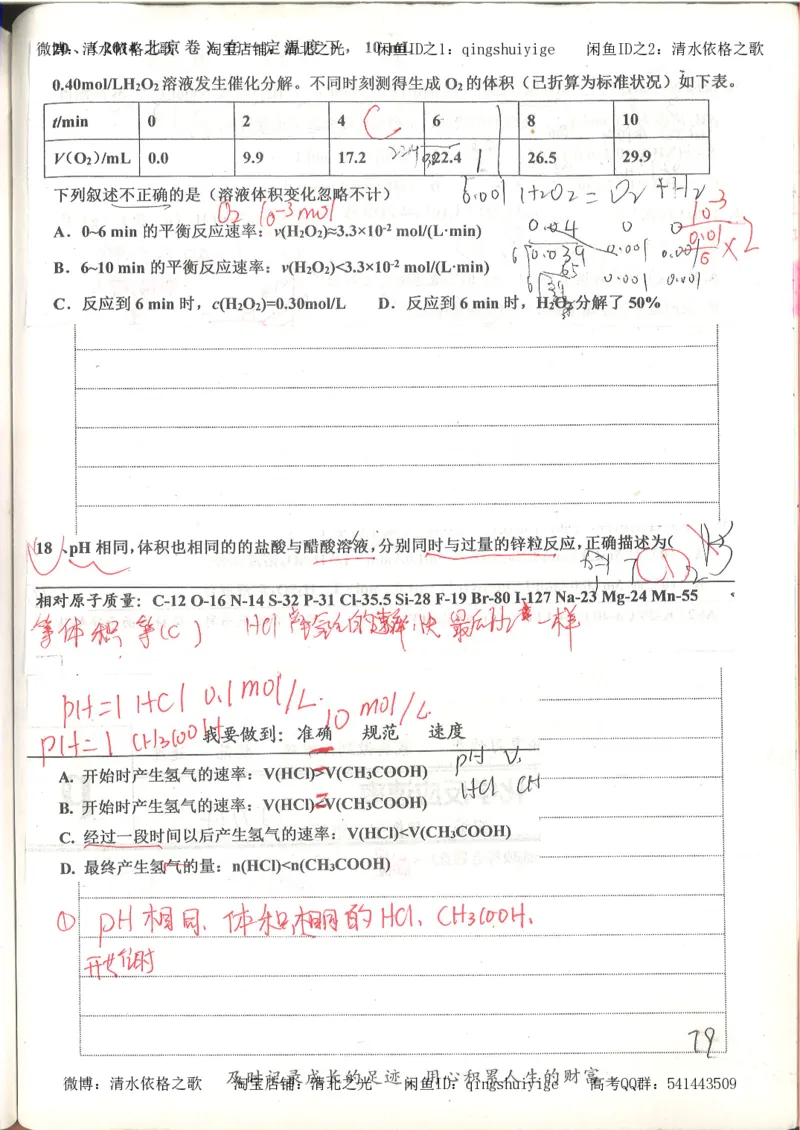 20、（2014 北京卷）在一定温度下，10 mL
微博：清水依格之歌 淘宝店铺：清北之光 闲鱼ID之1：qingshuiyige 闲鱼ID之2：清水依格之歌
0.40mol/LH₂O₂ 溶液发生催化分解。不同时刻测得生成 O₂ 的体积（已折算为标准状况）如下表。
t/min 0 2 4 6 8 10
V（O₂）/mL 0.0 9.9 17.2 22.4 26.5 29.9
C
下列叙述不正确的是（溶液体积变化忽略不计）
O₂ 10⁻³mol
A．0~6 min 的平衡反应速率：v(H₂O₂)≈3.3×10⁻² mol/(L·min)
0.04 0 0
0.039 0.001
B．6~10 min 的平衡反应速率：v(H₂O₂)<3.3×10⁻² mol/(L·min)
0.001 0.001
C．反应到 6 min 时，c(H₂O₂)=0.30mol/L D．反应到 6 min 时，H₂O₂分解了 50%
18、pH 相同，体积也相同的的盐酸与醋酸溶液，分别同时与过量的锌粒反应，正确描述为(
相对原子质量：C-12 O-16 N-14 S-32 P-31 Cl-35.5 Si-28 F-19 Br-80 I-127 Na-23 Mg-24 Mn-55
等体积 等(C) HCl 产氢气的速率快 最后H₂一样
pH=1 HCl 0.1mol/L.
pH=1 CH₃COOH 10 mol/L
我要做到：准确 规范 速度
A. 开始时产生氢气的速率：V(HCl)>V(CH₃COOH)
pH V,
HCl CH
B. 开始时产生氢气的速率：V(HCl)=V(CH₃COOH)
C. 经过一段时间以后产生氢气的速率：V(HCl)<V(CH₃COOH)
D. 最终产生氢气的量：n(HCl)<n(CH₃COOH)
① pH相同、体积相同的HCl、CH₃COOH、
开始时
79
及时记录成长的足迹 用心积累人生的财富
微博：清水依格之歌 淘宝店铺：清北之光 闲鱼ID：qingshuiyige 高考QQ群：541443509